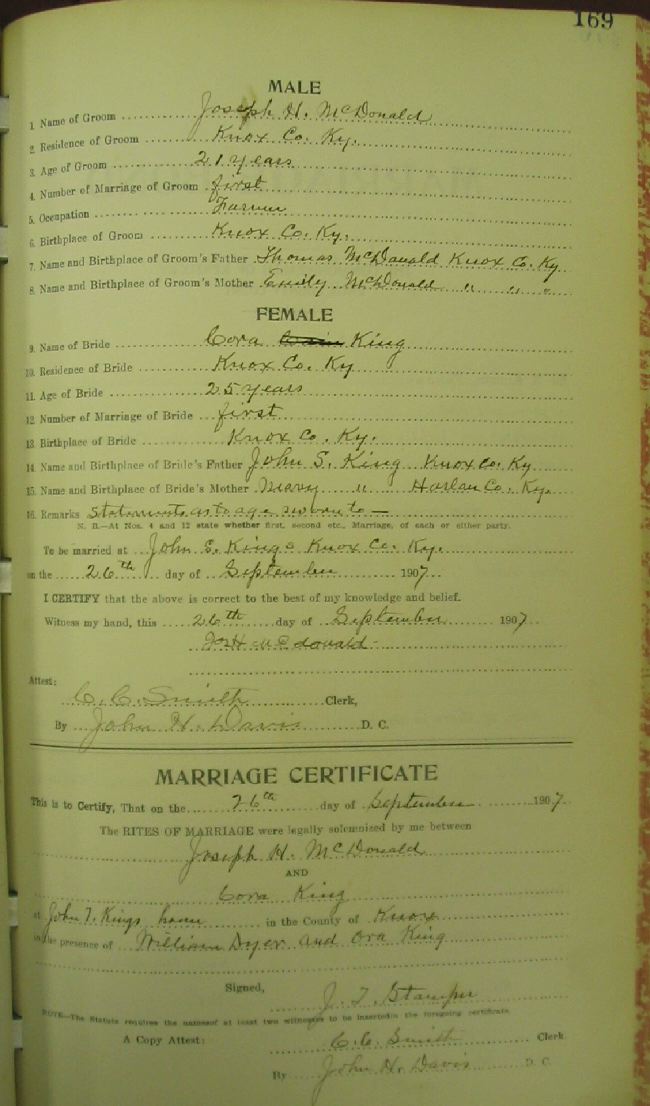 169
MALE
1 Name of Groom Joseph H. McDonald
2. Residence of Groom Knox Co. Ky.
3. Age of Groom 21 years
4. Number of Marriage of Groom first
5. Occupation Farmer
6. Birthplace of Groom Knox Co. Ky.
7. Name and Birthplace of Groom's Father Thomas McDonald Knox Co. Ky
8. Name and Birthplace of Groom's Mother Emily McDonald " " "
FEMALE
9. Name of Bride Cora King
10. Residence of Bride Knox Co. Ky
11. Age of Bride 25 years
12 Number of Marriage of Bride first
13. Birthplace of Bride Knox Co. Ky.
14. Name and Birthplace of Bride's Father John S. King Knox Co. Ky
15. Name and Birthplace of Bride's Mother Mary " Harlan Co. Ky.
16. Remarks Statements as to age sworn to —
N. B.—At Nos. 4 and 12 state whether first, second etc., Marriage, of each or either party.
To be married at John S. Kings Knox Co. Ky.
on the 26th day of September 1907
I CERTIFY that the above is correct to the best of my knowledge and belief.
Witness my hand, this 26th day of September 1907
Jos H McDonald
Attest:
C. C. Smith Clerk,
By John H. Davis D. C.
MARRIAGE CERTIFICATE
This is to Certify, That on the 26th day of September 1907.
The RITES OF MARRIAGE were legally solemnized by me between
Joseph H. McDonald
AND
Cora King
at John T. Kings home in the County of Knox
in the presence of William Dyer and Ora King
Signed, J. T. Stamper
NOTE—The Statute requires the names of at least two witnesses to be inserted in the foregoing certificate
A Copy Attest: C. C. Smith Clerk
By John H. Davis D. C.